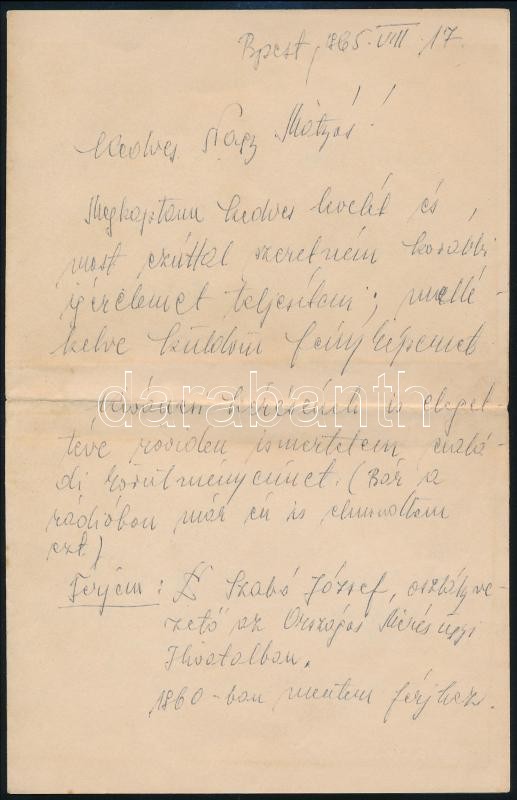 Bpest, 1965. VIII. 17.
Kedves Nagy Mátyás!
Megkaptam kedves levelét és
most ezúttal szeretném korábbi
igéretemet teljesíteni; mellé-
kelve küldöm fényképemet
kérésének is eleget
téve röviden ismertetem család-
di körülményeimet. (Bár a
rádióban már én is elmondtam
ezt)
Férjem: Dr Szabó József, osztályve-
zető az Országos Mérésügyi
Hivatalban.
1960-ban mentem férjhez.
darabanth